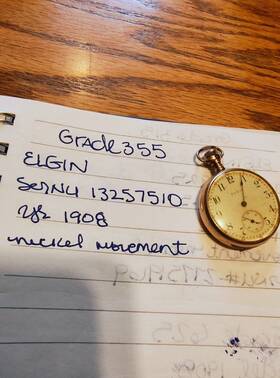 Grade 355
ELGIN
SerN4 13257510
Yr 1908
nickel movement